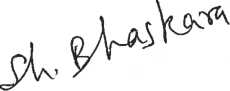 Sh. Bhaskara